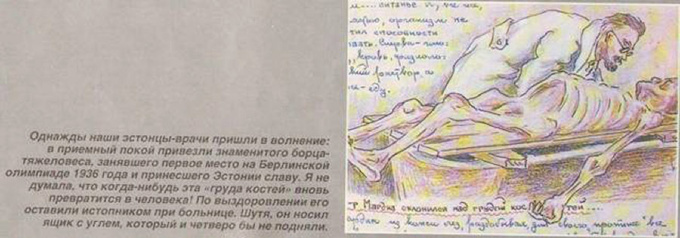 Однажды наши эстонцы-врачи пришли в волнение:
в приемный покой привезли знаменитого борца-
тяжеловеса, занявшего первое место на Берлинской
олимпиаде 1936 года и принесшего Эстонии славу. Я не
думала, что когда-нибудь эта «груда костей» вновь
превратится в человека! По выздоровлении его
оставили истопником при больнице. Шутя, он носил
ящик с углем, который и четверо бы не подняли.
организм не
способности
кровь,
раствор,
еду.
склонился над грудой
из